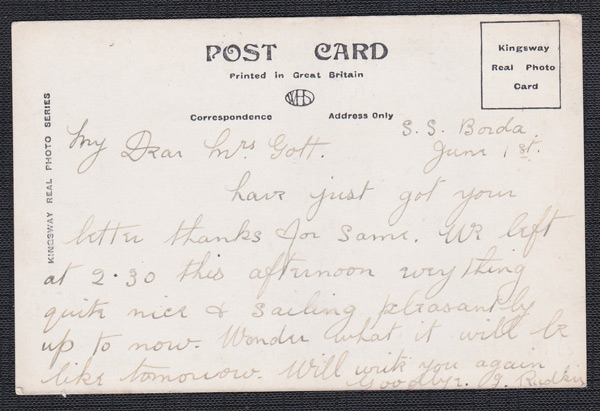 POST CARD
Printed in Great Britain
WHS
Kingsway
Real Photo
Card
KINGSWAY REAL PHOTO SERIES
Correspondence Address Only
S. S. Borda.
June 1st.
My Dear Mrs Gott.
have just got your
letter thanks for same. We left
at 2.30 this afternoon everything
quite nice & sailing pleasantly
up to now. Wonder what it will be
like tomorrow. Will write you again
Goodbye. J. Rudkin